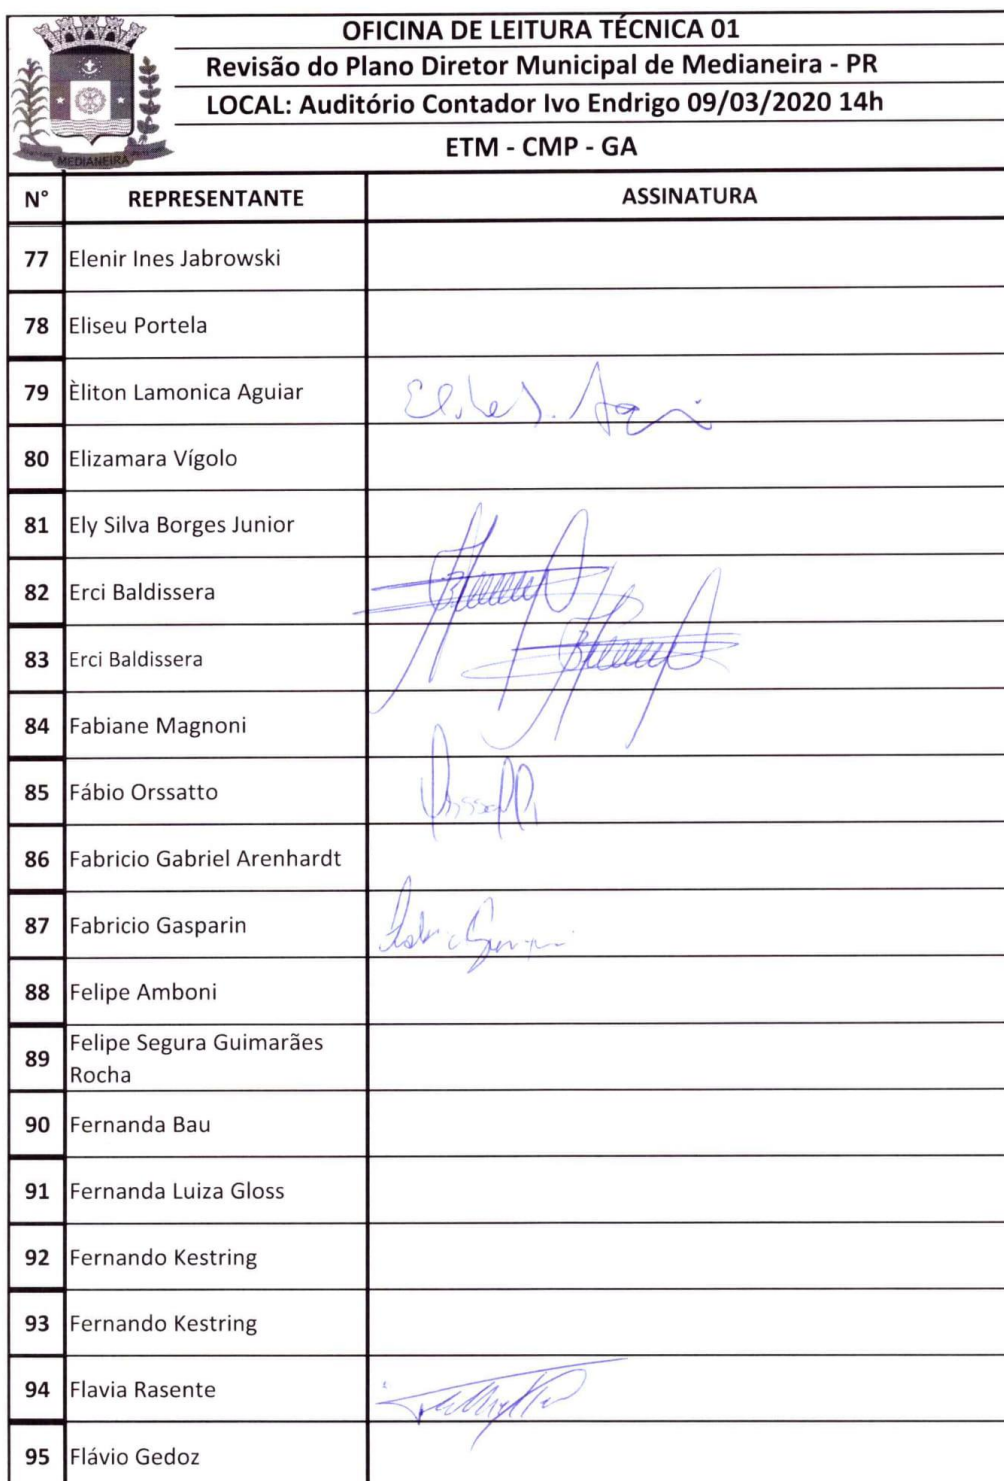 OFICINA DE LEITURA TÉCNICA 01
Revisão do Plano Diretor Municipal de Medianeira - PR
LOCAL: Auditório Contador Ivo Endrigo 09/03/2020 14h
ETM - CMP - GA
MEDIANEIRA
N° REPRESENTANTE ASSINATURA
77 Elenir Ines Jabrowski
78 Eliseu Portela
79 Èliton Lamonica Aguiar
80 Elizamara Vígolo
81 Ely Silva Borges Junior
82 Erci Baldissera
83 Erci Baldissera
84 Fabiane Magnoni
85 Fábio Orssatto
86 Fabricio Gabriel Arenhardt
87 Fabricio Gasparin
88 Felipe Amboni
89 Felipe Segura Guimarães
Rocha
90 Fernanda Bau
91 Fernanda Luiza Gloss
92 Fernando Kestring
93 Fernando Kestring
94 Flavia Rasente
95 Flávio Gedoz